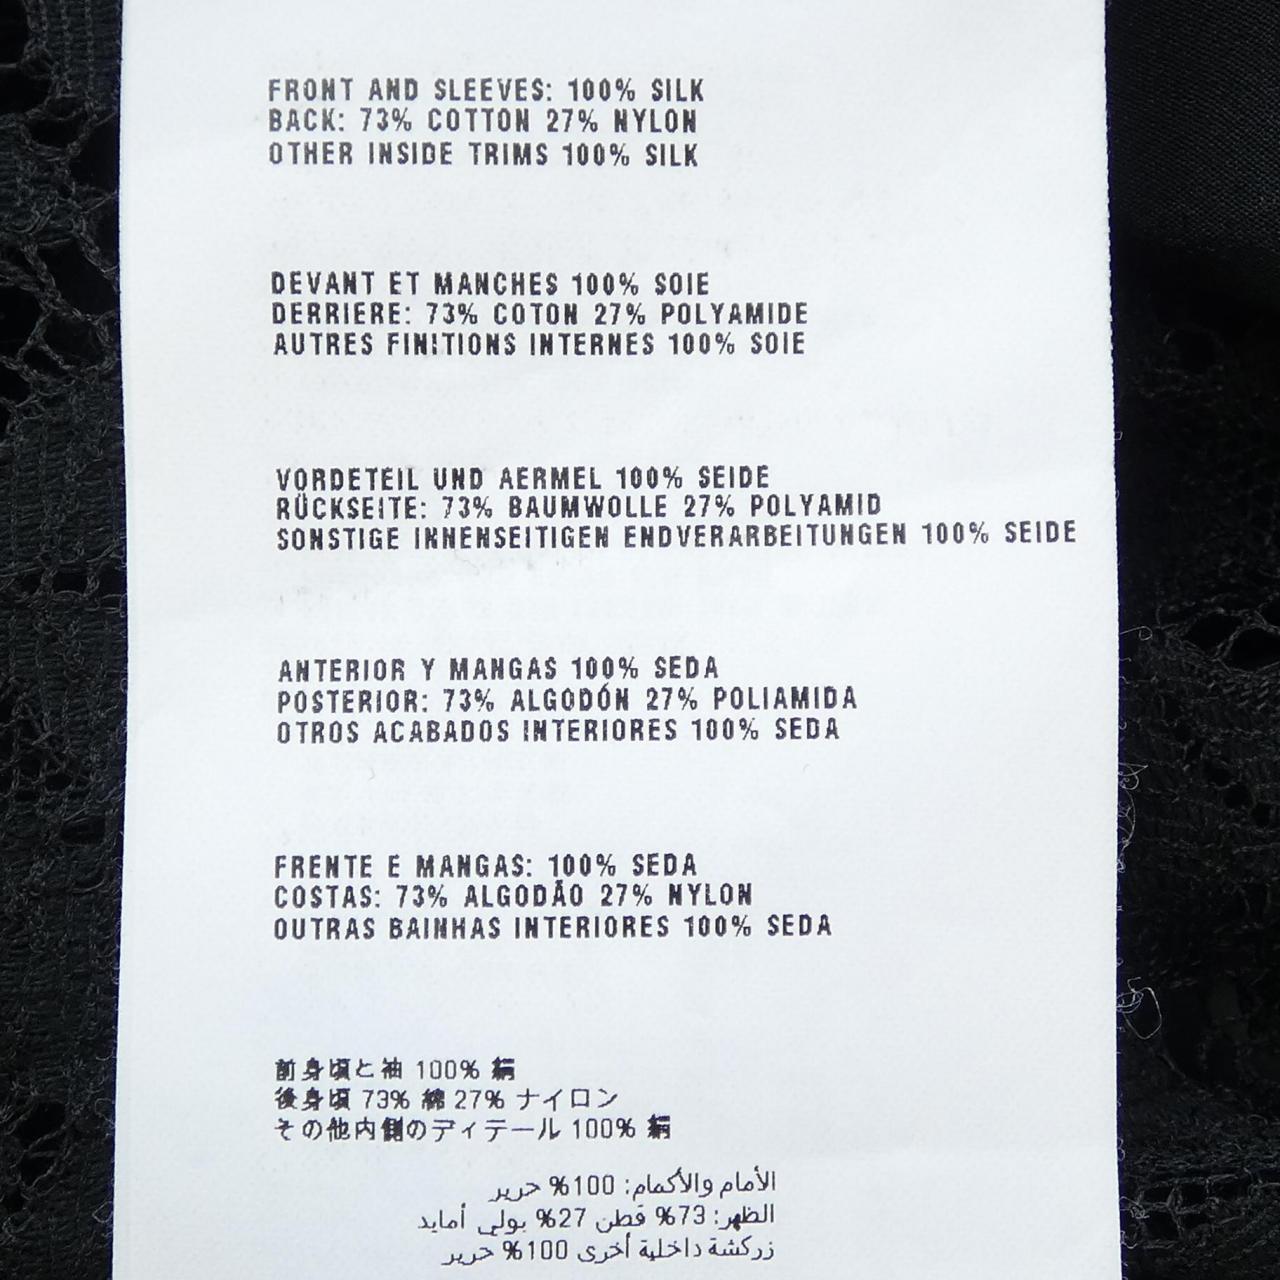 FRONT AND SLEEVES: 100% SILK
BACK: 73% COTTON 27% NYLON
OTHER INSIDE TRIMS 100% SILK
DEVANT ET MANCHES 100% SOIE
DERRIERE: 73% COTON 27% POLYAMIDE
AUTRES FINITIONS INTERNES 100% SOIE
VORDETEIL UND AERMEL 100% SEIDE
RÜCKSEITE: 73% BAUMWOLLE 27% POLYAMID
SONSTIGE INNENSEITIGEN ENDVERARBEITUNGEN 100% SEIDE
ANTERIOR Y MANGAS 100% SEDA
POSTERIOR: 73% ALGODÓN 27% POLIAMIDA
OTROS ACABADOS INTERIORES 100% SEDA
FRENTE E MANGAS: 100% SEDA
COSTAS: 73% ALGODÃO 27% NYLON
OUTRAS BAINHAS INTERIORES 100% SEDA
前身頃と袖 100% 絹
後身頃 73% 綿 27% ナイロン
その他内側のディテール 100% 絹
الأمام والأكمام: 100% حرير
الظهر: 73% قطن 27% بولي أمايد
زركشة داخلية أخرى 100% حرير